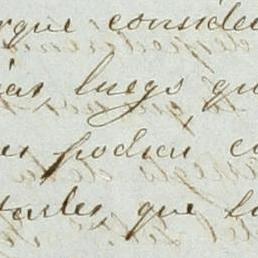 rque conside
ias, luego, qu
es podreu co
tarles, que lo